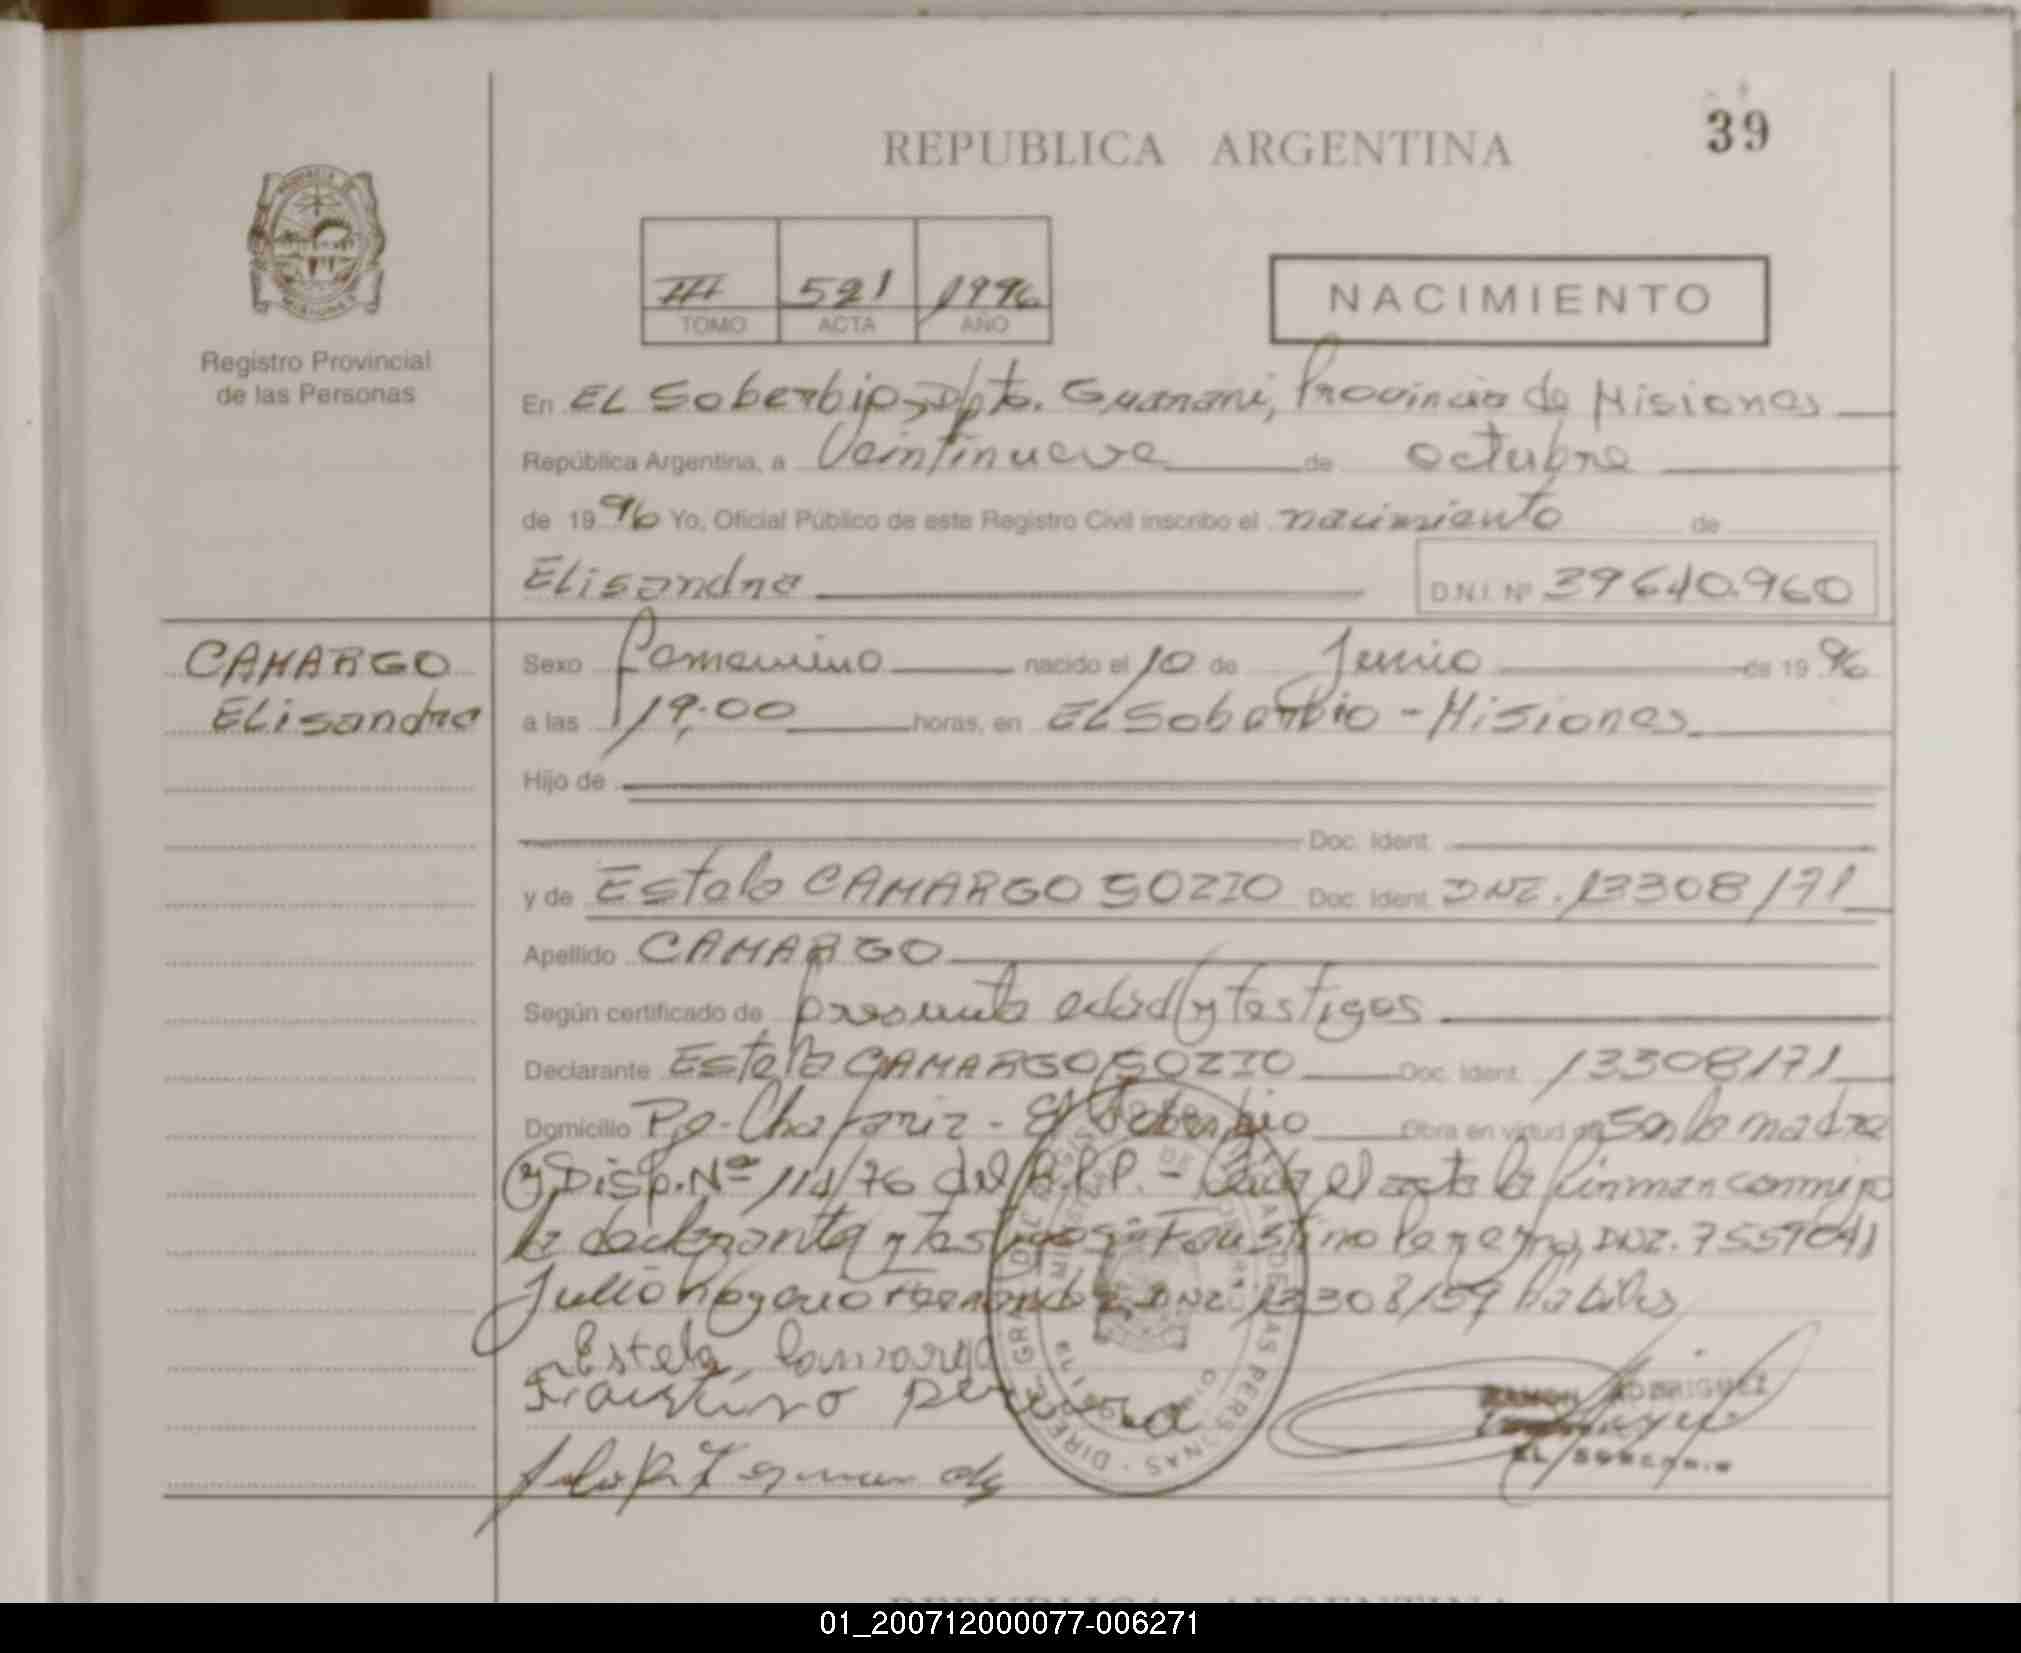 39
REPUBLICA ARGENTINA
III 521 1996
TOMO ACTA AÑO
NACIMIENTO
Registro Provincial
de las Personas
En EL Soberbio, Dpto. Guarani, Provincia de Misiones
República Argentina, a Veintinueve de octubre
de 1996 Yo, Oficial Público de este Registro Civil inscribo el nacimiento de
Elisandra D.N.I. Nº 39640.960
CAMARGO
Elisandra
Sexo femenino nacido el 10 de Junio de 1996
a las 19:00 horas, en EL Soberbio - Misiones
Hijo de
Doc. Ident.
y de Estela CAMARGO SOZZO Doc. Ident. DNI. 13308171
Apellido CAMARGO
Según certificado de presunta edad y testigos
Declarante Estela CAMARGO SOZZO Doc. Ident. 13308171
Domicilio Pje. Chafariz - El Soberbio Obra en virtud de Ser la madre
y Disp. Nº 114/76 del R.P.P. - Leida el acta la firman conmigo
la declarante y testigos: Faustino Pereyra, DNI. 7559041
Julio DNI 13308159 habiles
Estela Camargo
Faustino Pereira
RAMON RODRIGUEZ
EL SOBERBIO
REPUBLICA ARGENTINA
01_200712000077-006271